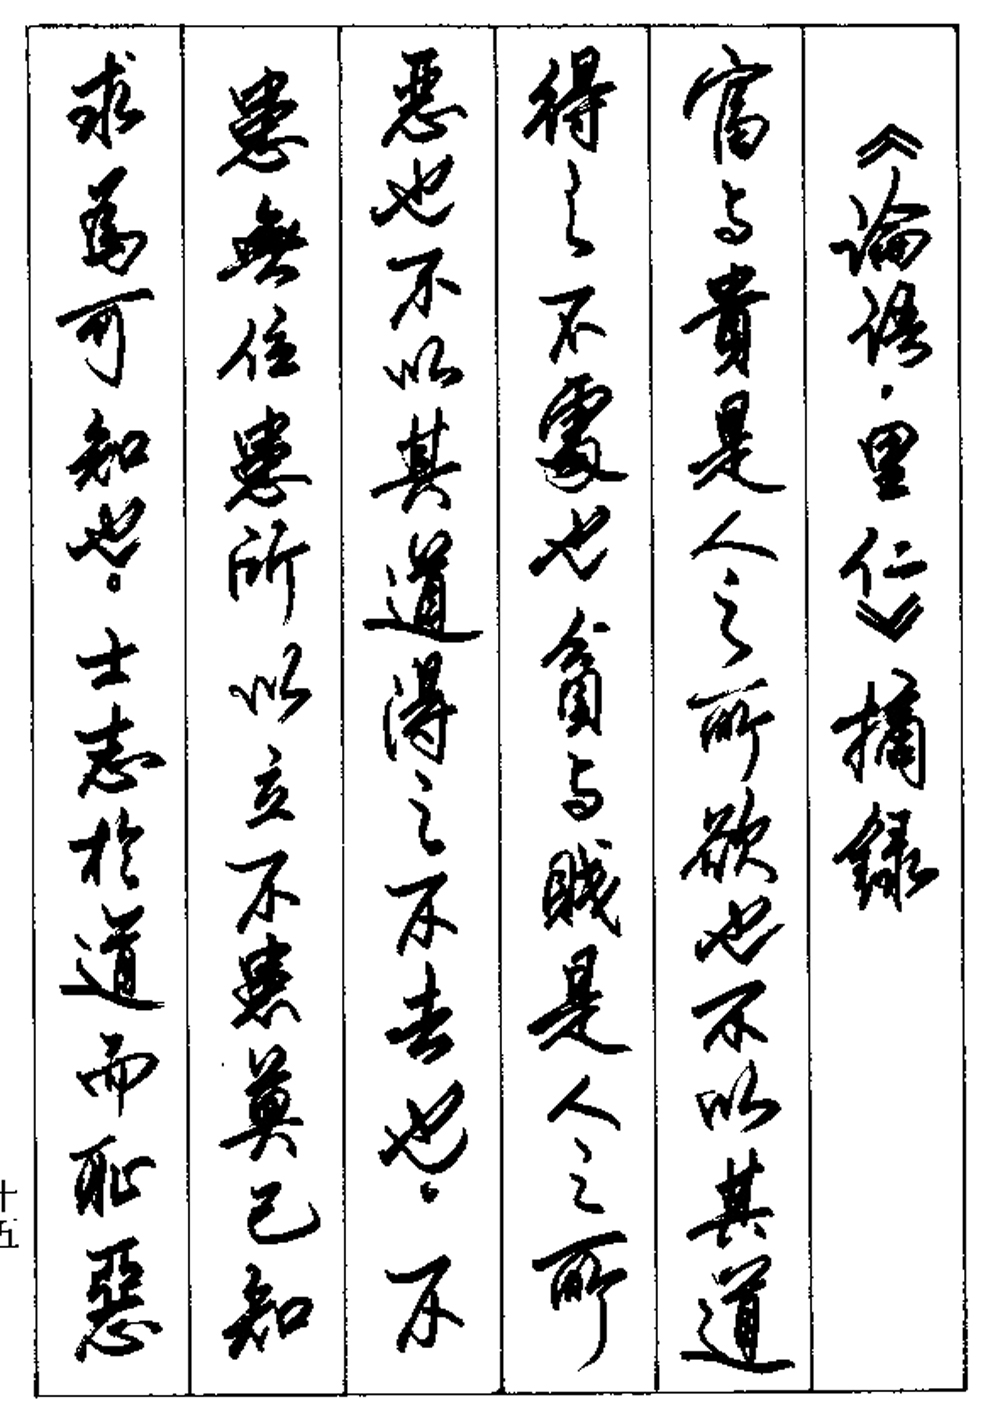 《論語·里仁》摘録
富与貴是人之所欲也不以其道
得之不處也貧与賤是人之所
惡也不以其道得之不去也。不
患無位患所以立不患莫己知
求為可知也。士志於道而恥惡
十五